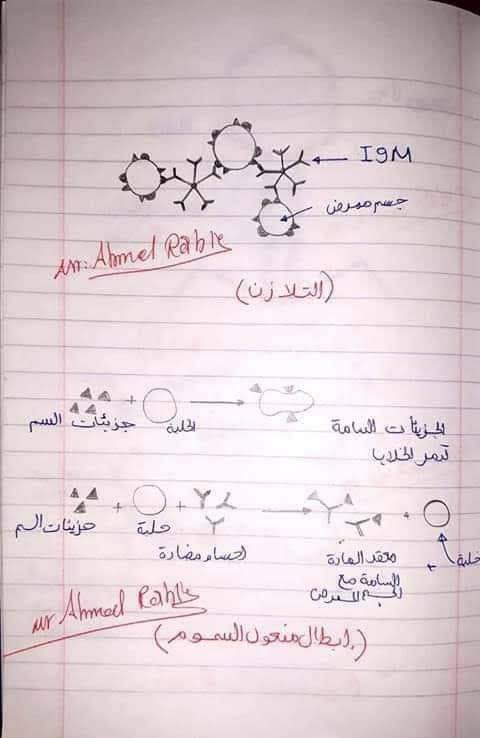 IgM
جسم ممرض
mr: Ahmed Rabie
(التلازن)
جزيئات السم + الخلية
الجزيئات السامة
تدمر الخلايا
جزيئات السم + خلية + اجسام مضادة
معقد المادة + خلية
السامة مع
mr Ahmed Rabie
(إبطال مفعول السموم)